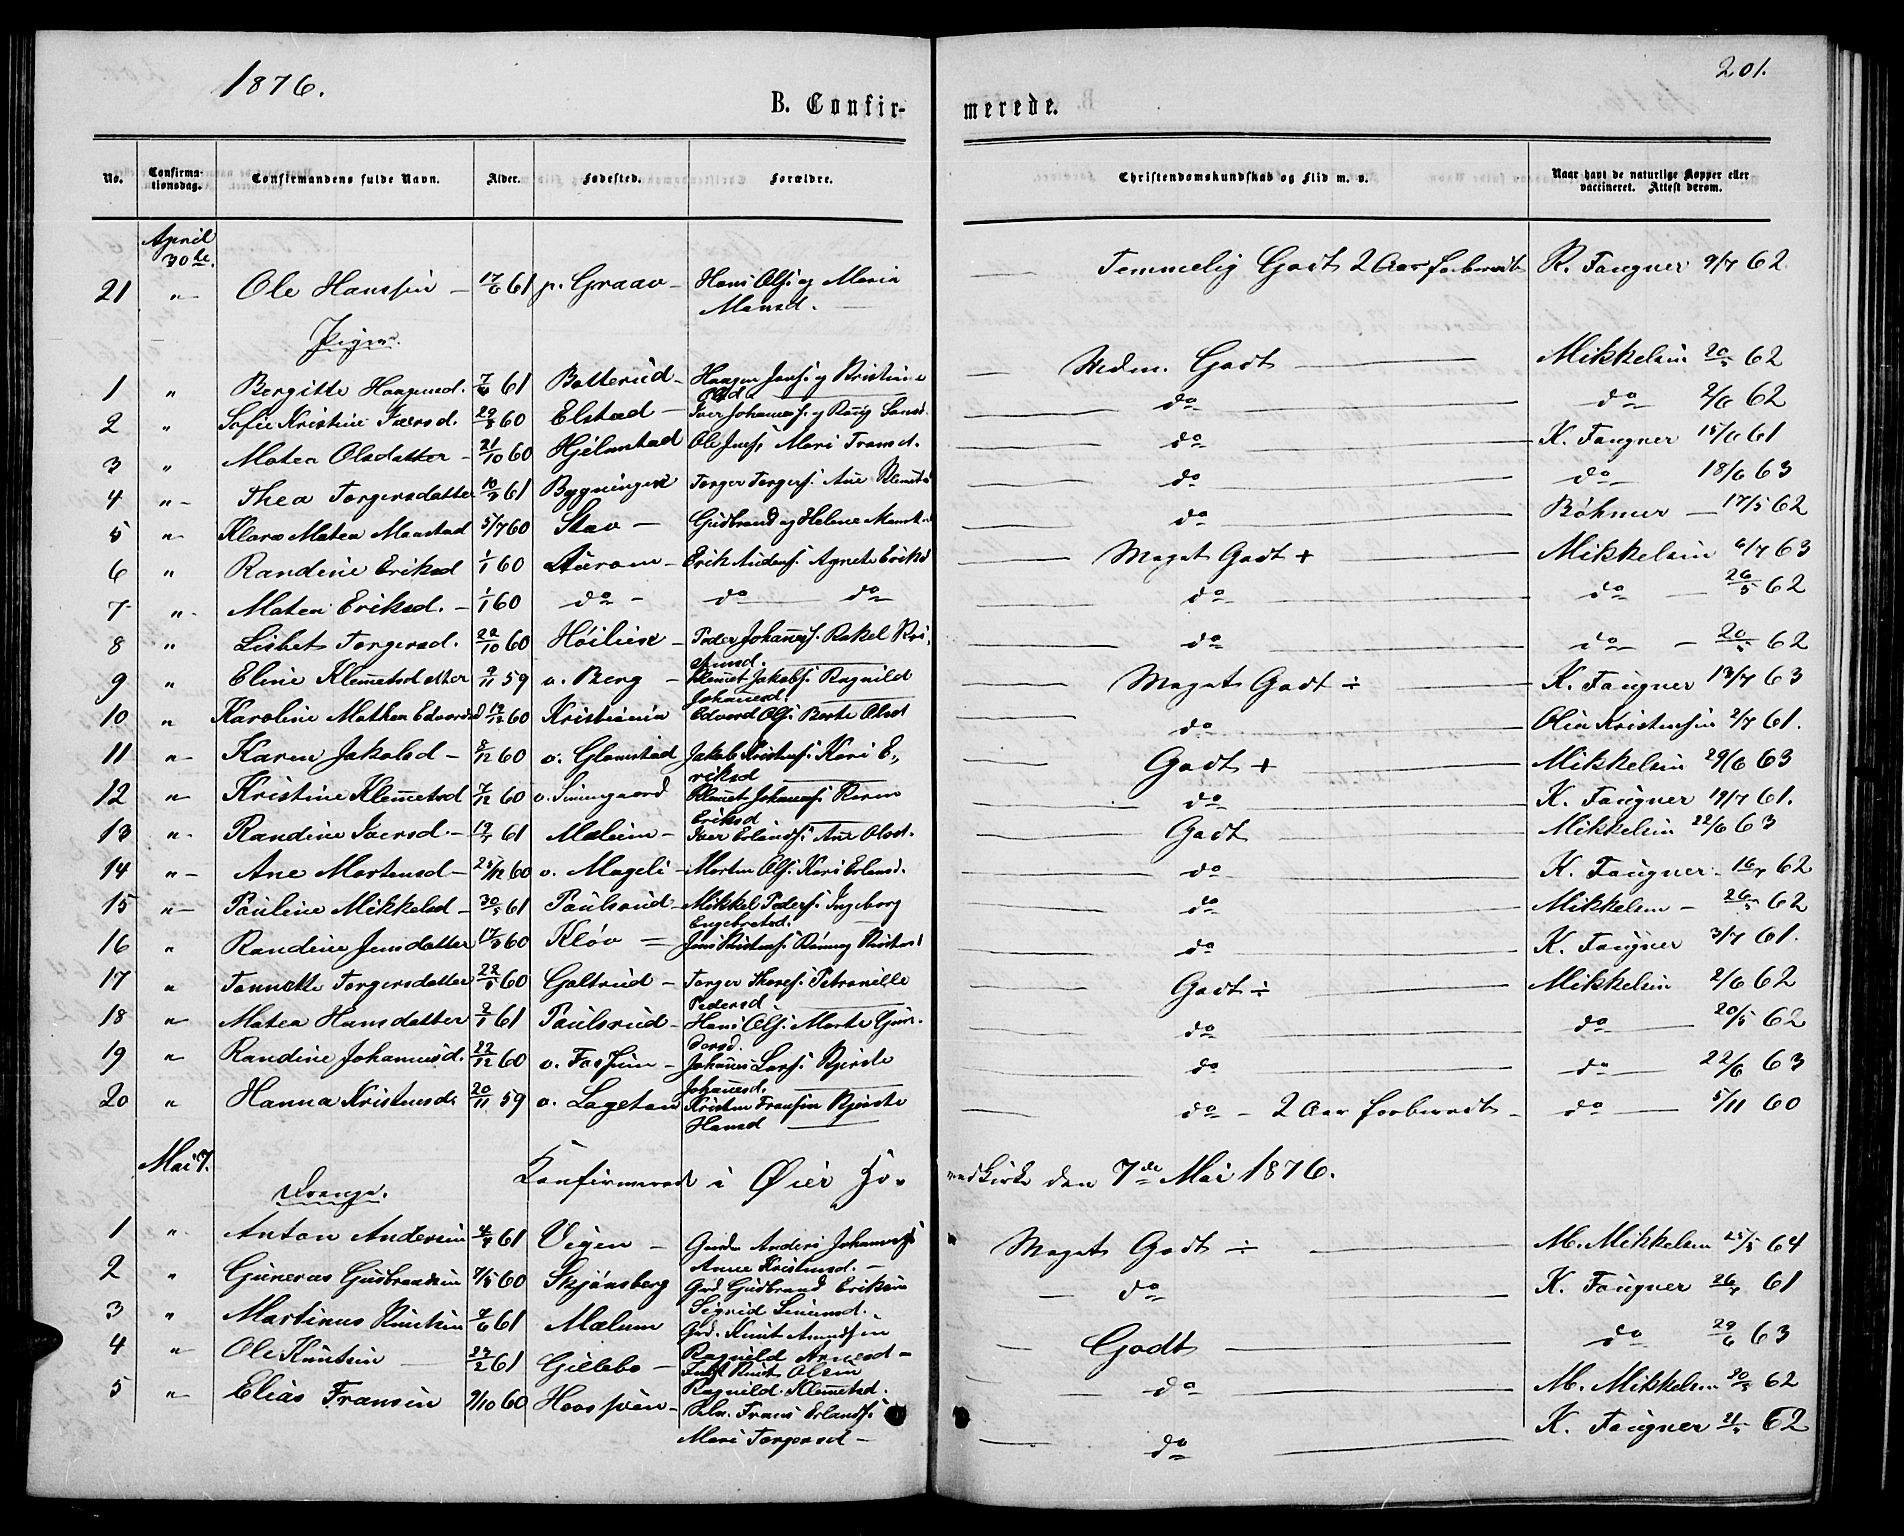 1876.
201.
B. Confirmerede.
No. Confirmationsdag. Confirmandens fulde Navn. Alder. Fødested. Forældre. Christendomskundskab og Flid m. v. Naar havt de naturlige Kopper eller vaccineret. Attest derom.
April 30te.
21 " Ole Hanssen 17/6 61 p. Graav Hans Ols. og Maria Hansd. Temmelig Godt 2 Aar forberedt K. Faugner 9/7 62
Piger.
1 " Bergitte Haagensd. 7/4 61 Batterud Haagen Jens. og Kristine Olsd. Medm. Godt Mikkelsen 20/5 62
2 " Sofie Kristine Iversd. 29/3 60 Elstad Iver Johaness. og do do 2/6 62
3 " Matea Olsdatter 21/10 60 Hjelmstad Ole Jens. Mari Transd. do K. Faugner 15/6 61
4 " Thea Torgersdatter 10/3 61 Bygningen Torger Torgers. Ane Klemetsd. do do 18/6 63
5 " Klara Matea Manstad 5/7 60 Stav Gudbrand og Helene do Böhmer 17/5 62
6 " Randine Eriksd 1/1 60 Aurom Erik Anders. Agnete Eriksd Meget Godt + Mikkelsen 6/7 63
7 " Matea Eriksd. 1/1 60 do do do do do 26/5 62
8 " Lisbet Torgersd. 22/10 60 Høilien Peder Johaness. Rakel Kristiansd. do do 20/5 62
9 " Eline Klemetsdatter 9/11 59 v. Berg Klemet Jakobs. Ragnild Johanesd. Meget Godt ÷ K. Faugner 13/7 63
10 " Karoline Mathea Edvardsd 12/12 60 Kristiania Edvard Ols. Berte Olsd do Olia Kristensen 2/7 61.
11 " Karen Jakobsd 8/12 60 v. Glomstad Jakob Kristens. Kari Eriksd Godt + Mikkelsen 29/6 63
12 " Kristine Klemetsd 7/12 60 v. Simengaard Klemet Johaness. Karen Eriksd do K. Faugner 19/7 61.
13 " Randine Iversd. 19/4 61 Mælum Iver Erlands. Ane Olsd. Godt Mikkelsen 22/6 63
14 " Ane Mortensd 25/12 60 v. Mageli Morten Ols. Kari Erlansd. do K. Faugner 16/7 62
15 " Pauline Mikkelsd 30/5 61 Paulsrud Mikkel Peders. Ingeborg Engebretsd. do Mikkelsen 26/5 62
16 " Randine Jensdatter 17/3 60 Kløv Jens Kristens. Rønnog do K. Faugner 3/7 61.
17 " Tonnette Torgersdatter 22/5 60 Galtrud Torger Thores. Petronille Pedersd Godt ÷ Mikkelsen 2/6 62
18 " Matea Hansdatter 2/1 61 Paulsrud Hans Ols. Marte do do 20/5 62
19 " Randine Johannesd. 22/12 60 v. Fossum Johanes Lars. Kjerste Johanesd. do do 22/6 63
20 " Hanna Kristensd. 20/11 59 v. Lagetan Kristen Fransen Kjerste Hansd do 2 Aar forberedt do 5/11 60
Mai 7. Konfirmered i Øier Hovedkirke den 7de Mai 1876.
Drenge.
1 " Anton Andersen 4/4 61 Vigen Grdm Anders Johaness. Anne Kristensd. Meget Godt ÷ M. Mikkelsen 25/5 64
2 " Gunerus Gudbrandsen 7/5 60 Skjønsberg Grd Gudbrand Eriksen Sigrid Simensd. do K. Faugner 26/7 61
3 " Martinus Knutsen 7/6 61 Mælum Grd. Knut Amundsen Ragnild Arnesd Godt do 29/6 63
4 " Ole Knutsen 27/2 61 Gillebo Inds. Knut Olsen Ragnild Klemetsd. do M. Mikkelsen 20/5 62
5 " Elias Fransen 9/10 60 Hovsveen Selv. Frans Erlands. Mari Torgersd do K. Faugner 21/5 62